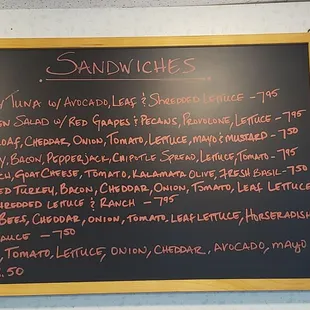 SANDWICHES
TUNA W/ AVOCADO, LEAF & SHREDDED LETTUCE - 7.95
SALAD W/ RED GRAPES & PECANS, PROVOLONE, LETTUCE - 7.95
LOAF, CHEDDAR, ONION, TOMATO, LETTUCE, MAYO & MUSTARD - 7.50
BACON, PEPPERJACK, CHIPOTLE SPREAD, LETTUCE, TOMATO - 7.95
GOAT CHEESE, TOMATO, KALAMATA OLIVE, FRESH BASIL - 7.50
TURKEY, BACON, CHEDDAR, ONION, TOMATO, LEAF LETTUCE
SHREDDED LETTUCE & RANCH - 7.95
BEEF, CHEDDAR, ONION, TOMATO, LEAF LETTUCE, HORSERADISH
SAUCE - 7.50
, TOMATO, LETTUCE, ONION, CHEDDAR, AVOCADO, MAYO
.50